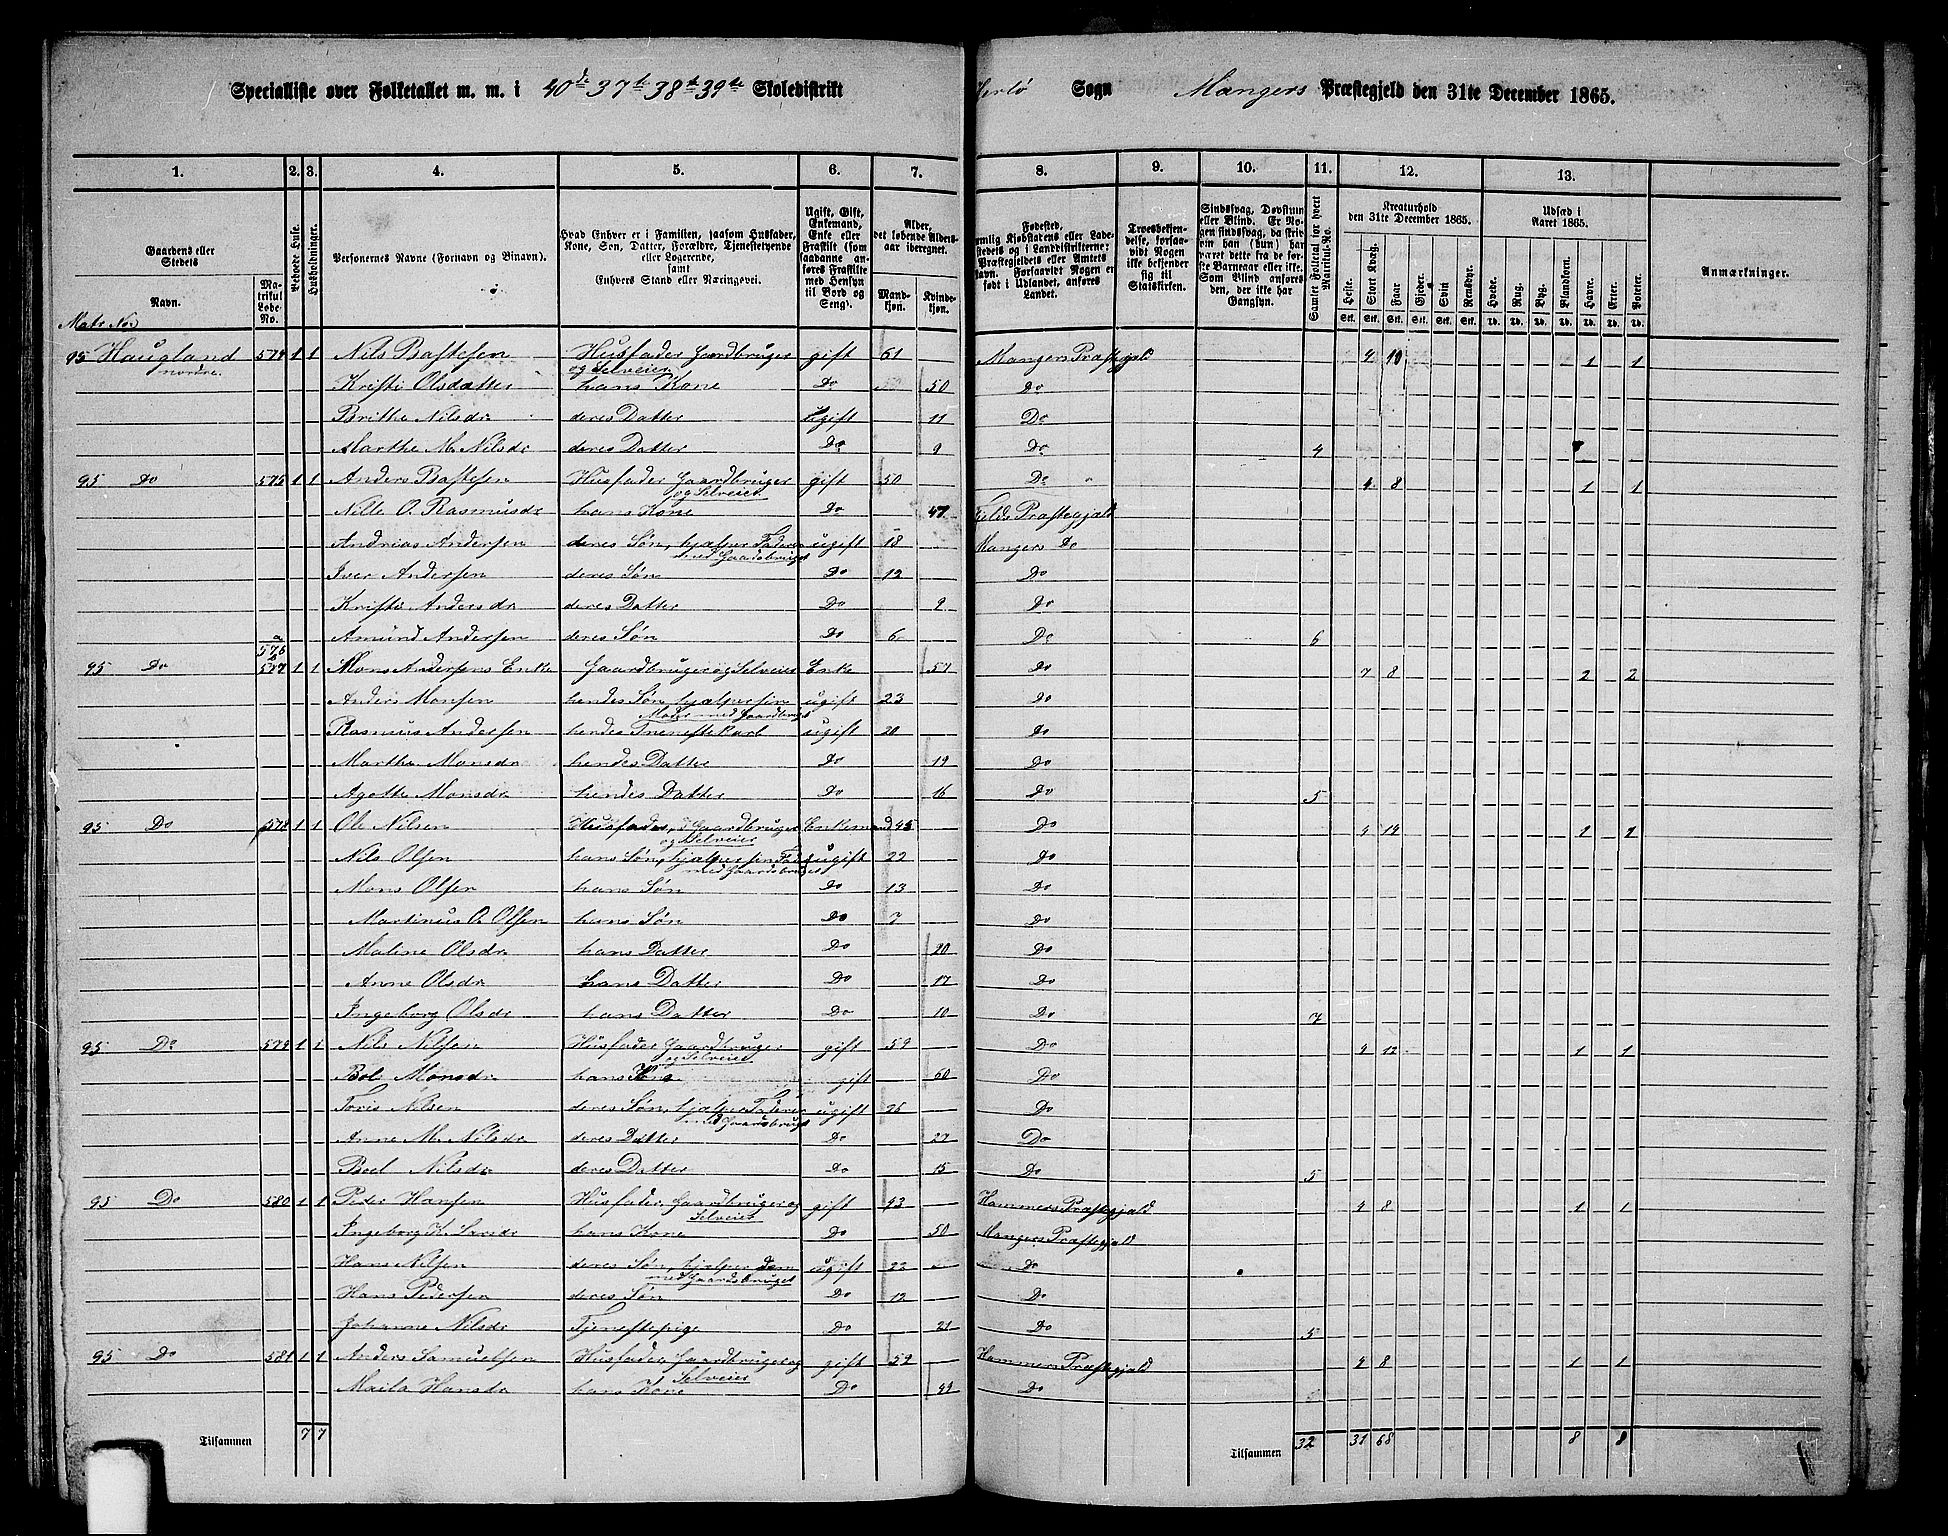 Specialliste over Folketallet m. m. i 40de 37te 38te 39te Skoledistrikt Herlö Sogn Mangers Præstegjeld den 31te December 1865.
1. 2. 3. 4. 5. 6. 7. 8. 9. 10. 11. 12. 13.
Gaardens eller Stedets
Navn.
Matrikul Løbe-No.
Beboede Huse.
Husholdninger.
Personernes Navne (Fornavn og Binavn).
Hvad Enhver er i Familien, saasom Husfader, Kone, Søn, Datter, Forældre, Tjenestetyende eller Logerende, samt Enhvers Stand eller Næringsvei.
Ugift, Gift, Enkemand, Enke eller Fraskilt (som saadanne anføres Fraskilte med Hensyn til Bord og Seng).
Alder, det løbende Aldersaar iberegnet.
Mandkjøn. Kvindekjøn.
Fødested,
Troesbekjendelse, forsaavidt Nogen ikke bekjender sig til Statskirken.
Samlet Folketal for hvert Matrikul-No.
Kreaturhold den 31te December 1865.
Heste. Stort Kvæg. Faar. Gjeder. Sviin. Rensdyr.
Udsæd i Aaret 1865.
Hvede. Rug. Byg. Blandkorn. Havre. Erter. Poteter.
Anmærkninger.
Matr No
95 Haugland nordre 574 1 1 Nils Bastesen Husfader Gaardbruger og Selveier gift 61 Mangers Præstegjald 4 10 1 1
Kristi Olsdatter hans Kone Do 50 Do
Brithe Nilsdr deres Datter ugift 11 Do
Marthe M. Nilsdr deres Datter Do 9 Do 4
95 Do 575 1 1 Anders Bastesen Husfader Gaardbruger og Selveier gift 50 Do 4 8 1 1
Nille O. Rasmusdr hans Kone Do 47 Fjelds Præstegjald
Andrias Andersen deres Søn, hjælper Faderen med Gaardsbruget ugift 18 Mangers Do
Iver Andersen deres Søn Do 12 Do
Kristi Andersdr deres Datter Do 9 Do
Amund Andersen deres Søn Do 6 Do 6
95 Do 576 577 1 1 Mons Andersens Enke Gaardbruger og Selveier Enke 51 Do 7 8 2 2
Anders Monsen hendes Søn hjælper sin Moder med Gaardbrugt ugift 23 Do
Rasmus Andersen hendes Tienestekarl ugift 20 Do
Marthe Monsdr hendes Datter Do 19 Do
Agotte Monsdr hendes Datter Do 16 Do 5
95 Do 578 1 1 Ole Nilsen Husfader, Gaardbruger og Selveier Enkemand 45 Do 4 14 1 1
Nils Olsen hans Søn, hjælper sin Fader med Gaardsbruget ugift 22 Do
Mons Olsen hans Søn Do 13 Do
Martinus O. Olsen hans Søn Do 7 Do
Maline Olsdr hans Datter Do 20 Do
Anne Olsdr hans Datter Do 17 Do
Ingeborg Olsdr hans Datter Do 10 Do 7
95 Do 579 1 1 Nils Nilsen Husfader Gaardbruger og Selveier gift 59 Do 4 12 1 1
Boel Monsdr hans Kone gift 60 Do
Toris Nilsen deres Søn, hjælper Faderen med Gaardsbruget ugift 25 Do
Anne M. Nilsdr deres Datter Do 27 Do
Boel Nilsdr deres Datter Do 15 Do 5
95 Do 580 1 1 Peder Hansen Husfader, Gaardbruger og Selveier gift 43 Hammers Præstegjald 4 8 1 1
Ingeborg K. Larsdr hans Kone Do 50 Mangers Præstegjald
Hans Nilsen deres Søn, hjælper dem med Gaardsbruget ugift 22 Do
Hans Pedersen deres Søn Do 12 Do
Johanne Nilsdr Tjenestepige Do 21 Do 5
95 Do 581 1 1 Anders Samuelsen Husfader, Gaardbruger og Selveier gift 59 Hammers Præstegjald 4 8 1 1
Maila Hansdr hans Kone Do 44 Do
Tilsammen 7 7 Tilsammen 32 31 68 8 8